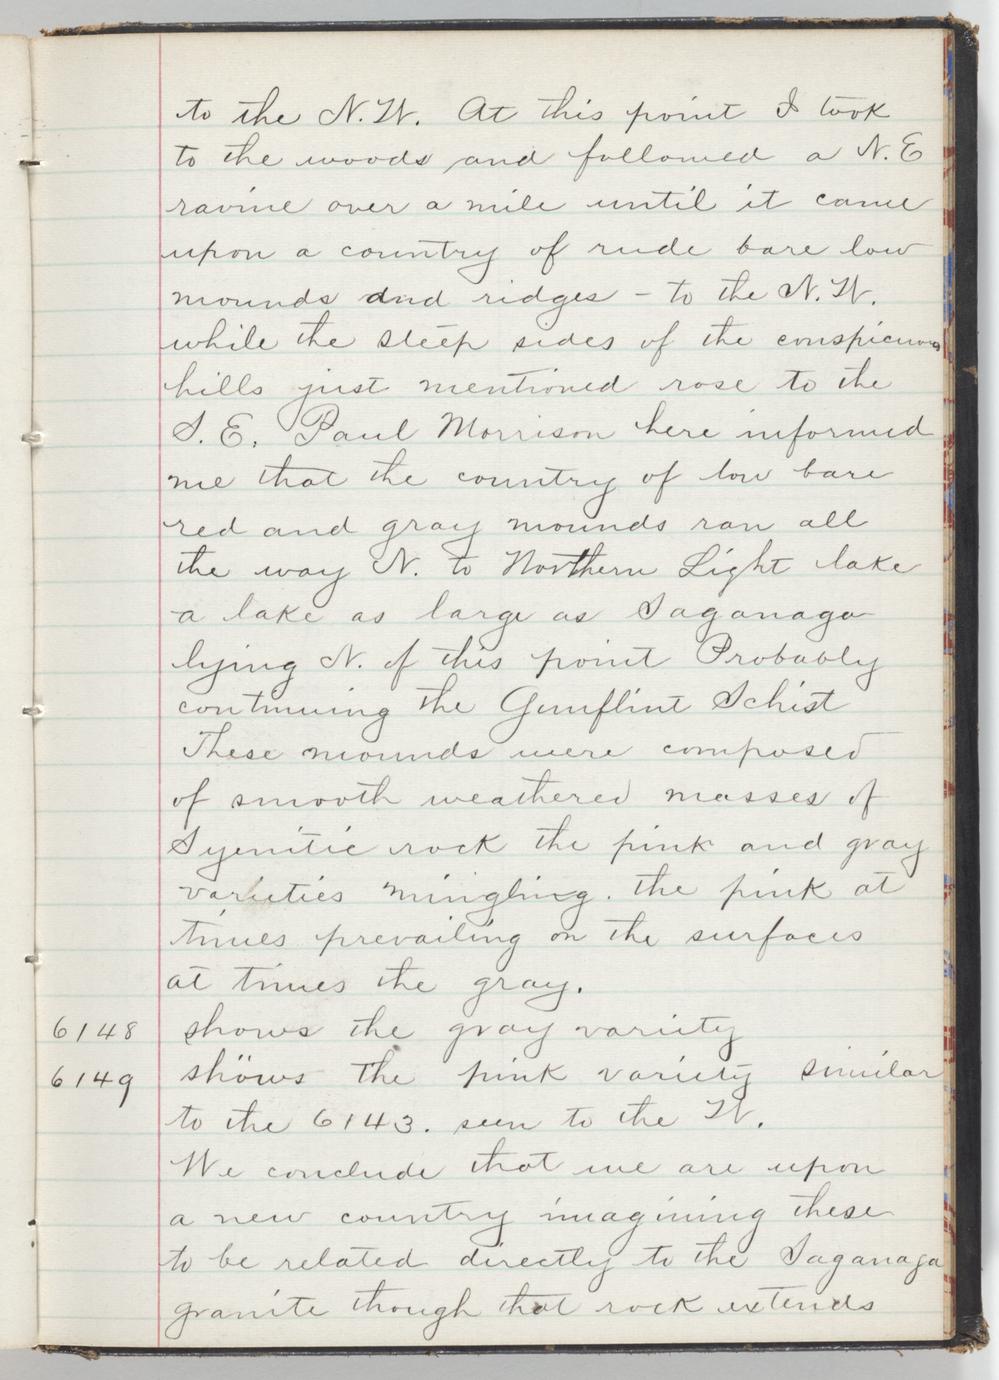 to the N.W. At this point I took
to the woods and followed a N.E
ravine over a mile until it came
upon a country of rude bare low
mounds and ridges - to the N.W.
while the steep sides of the conspicuous
hills just mentioned rose to the
S.E. Paul Morrison here informed
me that the country of low bare
red and gray mounds ran all
the way N. to Northern Light lake
a lake as large as Saganaga
lying N. of this point Probably
continuing the Gunflint Schist
These mounds were composed
of smooth weathered masses of
Syenitic rock the pink and gray
varieties mingling. the pink at
times prevailing on the surfaces
at times the gray.
6148 shows the gray variety
6149 shows the pink variety similar
to the 6143. seen to the W.
We conclude that we are upon
a new country imagining these
to be related directly to the Saganaga
granite though that rock extends